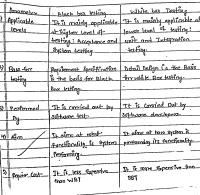 Parameter Black box testing White box Testing
Applicable It is mainly applicable It is mainly applicable at
levels at higher level of lower level of testing:
testing: Acceptance and unit and Integration
System testing testing.
Base for Requirement Specification Detail Design is the Basis
testing is the basis for Black for White Box testing.
Box testing.
Performed It is carried out by It is carried out by
by Software tester. Software developers.
Aim It aims at what It aims at how system is
functionality is system performing its functionality.
performing.
It is less expensive It is more expensive than
than WBT BBT